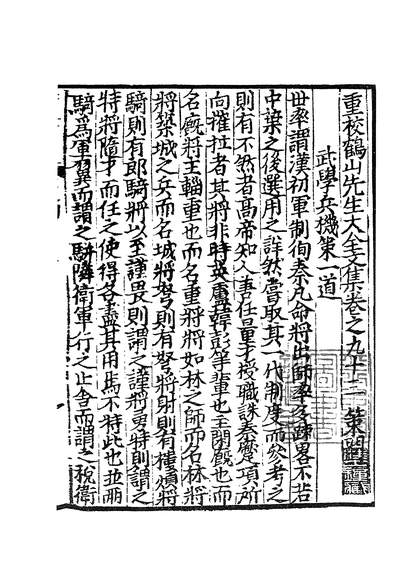 重校鶴山先生大全文集卷之九十三 策問
武學兵機策一道
世率謂漢初軍制徇秦凡命將出師率多疎畧不若
中葉之後選用之詳然嘗取其一代制度而參考之
則有不然者髙帝知人善任量才授職誅秦蹙項所
向摧拉者其將非時英盧韓彭等輩也主閑廐也而
名廐將主輜重也而名重將將如林之師而名林將
將築城之兵而名城將弩則有弩將射則有樓煩將
騎則有郎騎將以至謹畏則謂之謹將勇特則謂之
特將隨才而任之使得各盡其用焉不特此也並兩
騎爲軍翼而謂之騈隣衛軍行之止舎而謂之稅衛